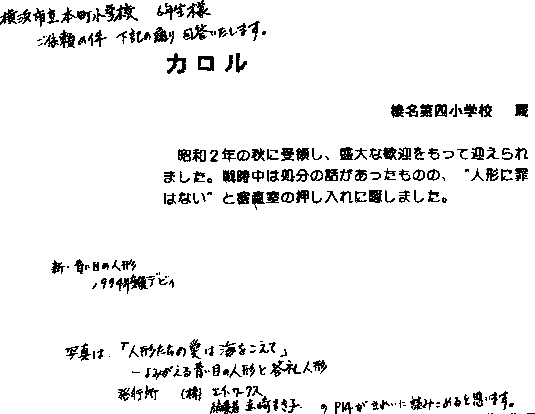 横浜市立本町小学校 6年生様
ご依頼の件 下記の通り 回答いたします。
カロル
榛名第四小学校 蔵
昭和2年の秋に受領し、盛大な歓迎をもって迎えられ
ました。戦時中は処分の話があったものの、“人形に罪
はない”と裁縫室の押し入れに隠しました。
新・青い目の人形
1994年 デビィ
写真は、「人形たちの愛は海をこえて」
ーよみがえる青い目の人形と答礼人形
発行所 (株)
編集者
の P14が きれいに 読みこめると思います。